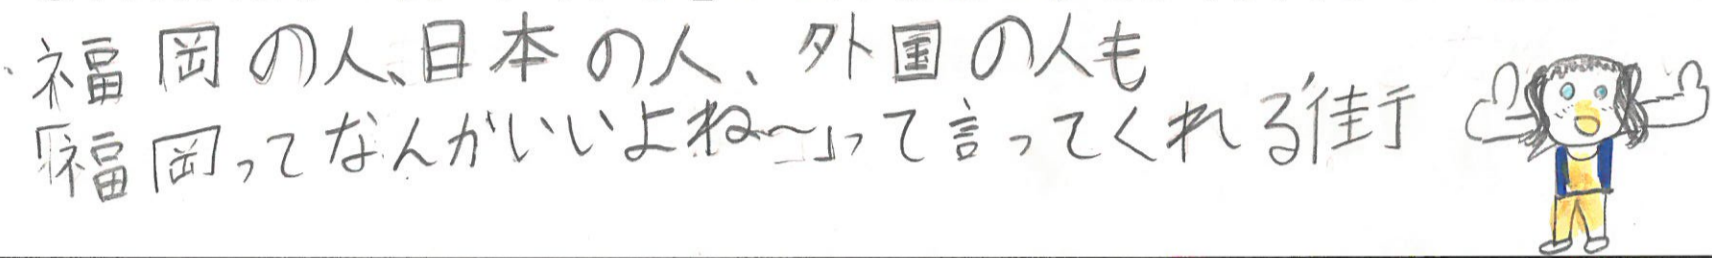 ・福岡の人、日本の人、外国の人も
「福岡ってなんかいいよね〜」って言ってくれる街